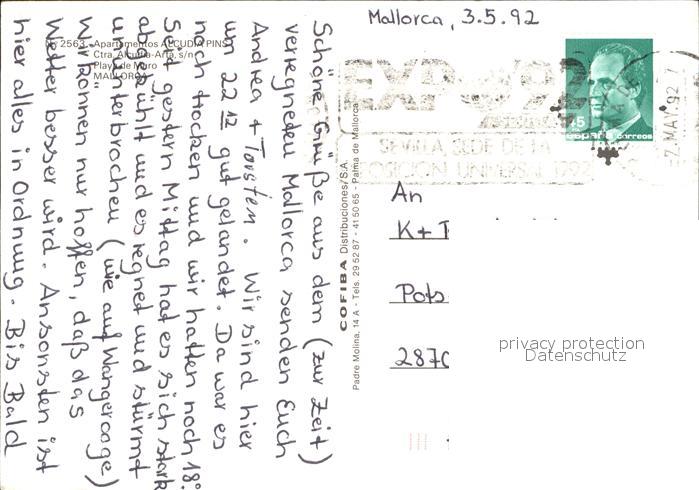 Mallorca, 3.5.92
Schöne Grüße aus dem (zur Zeit)
verregneten Mallorca senden Euch
Andrea + Torsten. Wir sind hier
um 22 12 gut gelandet. Da war es
noch trocken und wir hatten noch 18°.
Seit gestern Mittag hat es sich stark
abgekühlt und es regnet und stürmt
ununterbrochen (wie auf Wangerooge)
Wir können nur hoffen, daß das
Wetter besser wird. Ansonsten ist
hier alles in Ordnung. Bis Bald
2563. Apartamentos ALCUDIA PINS
Ctra. Alcudia-Artá, s/n
Playa de Muro
MALLORCA
COFIBA Distribuciones/S.A.
Padre Molina, 14 A - Tels. 29 52 87 - 41 50 65 - Palma de Mallorca
EXPO 92
SEVILLA, SEDE DE LA
EXPOSICION UNIVERSAL 1992
45
españa correos
MAY 92
An
K+T
Pots
2870
privacy protection
Datenschutz